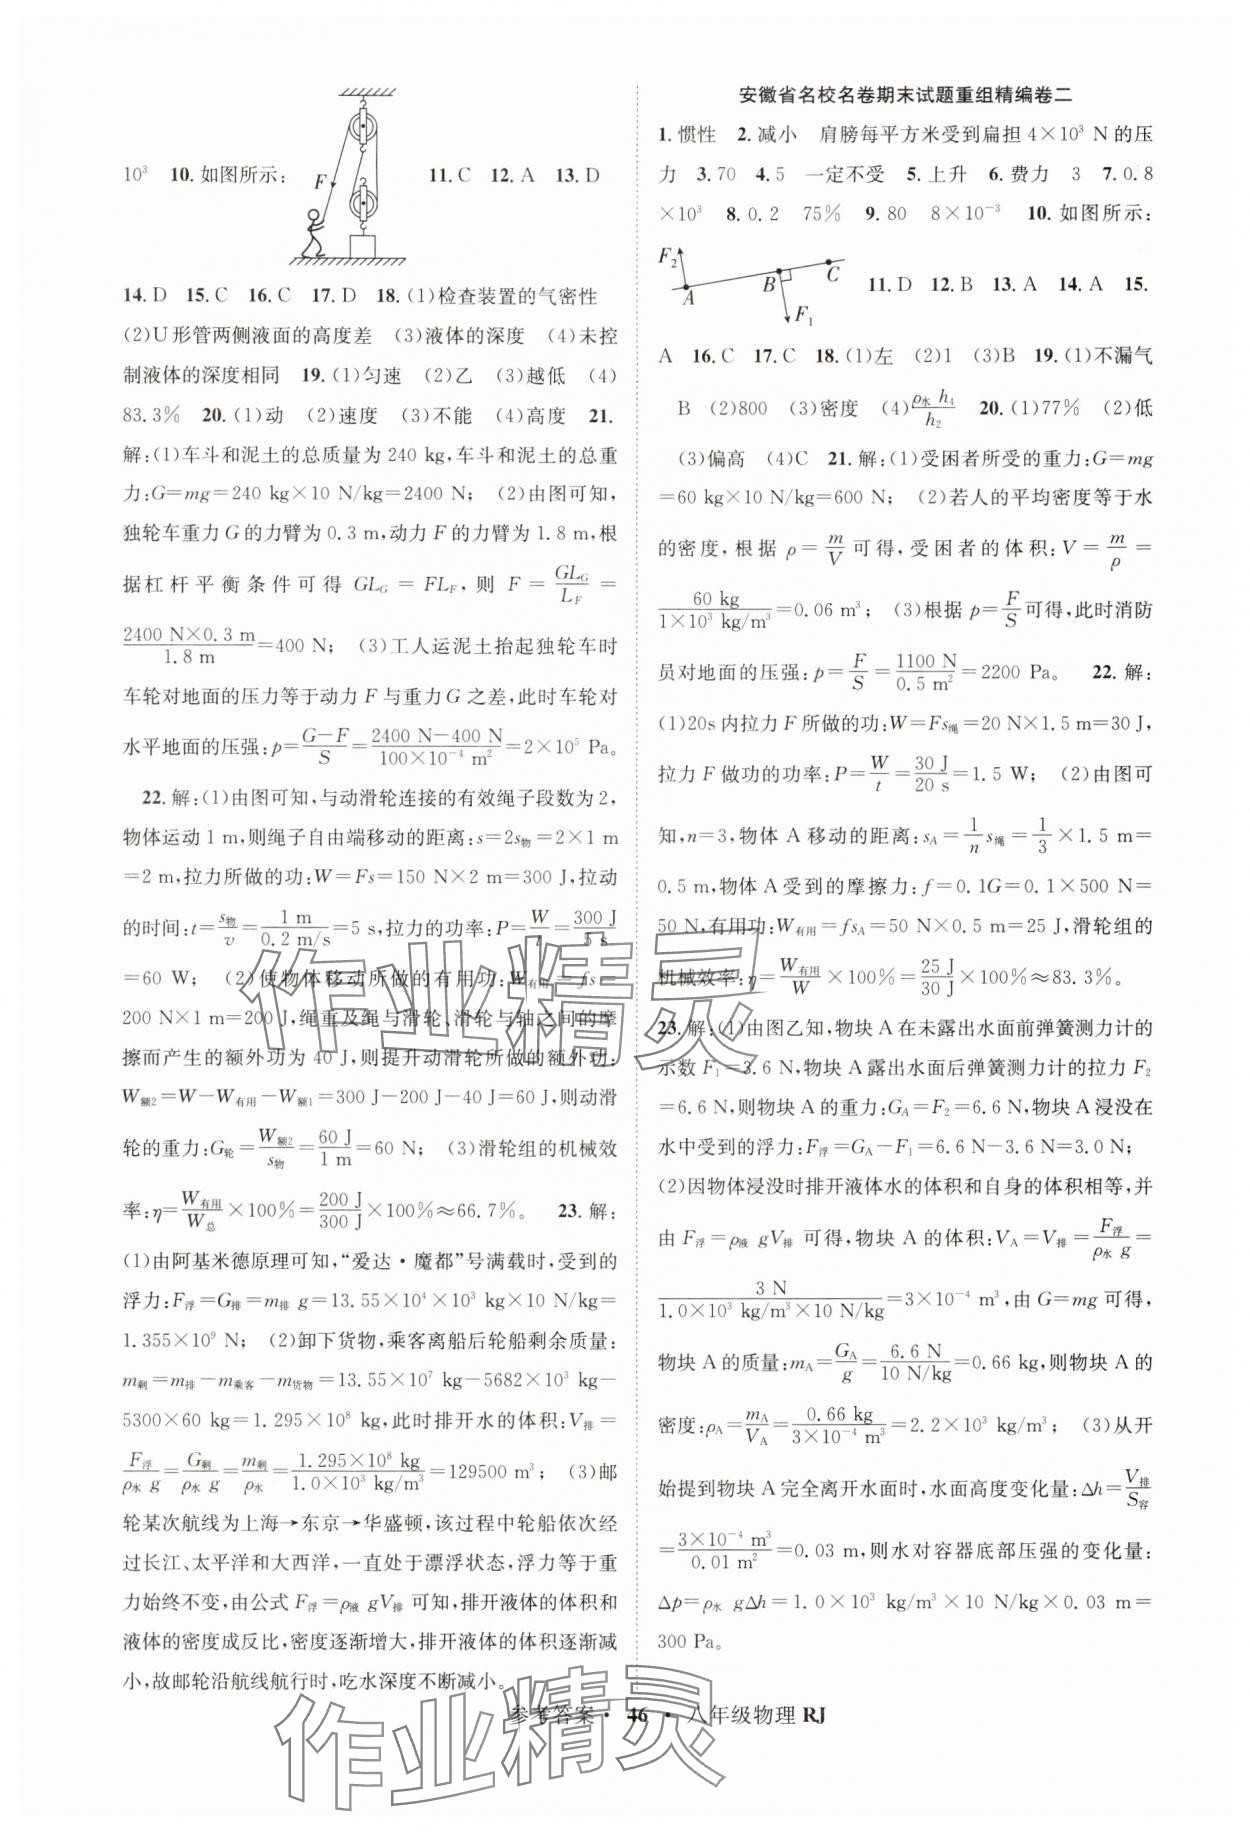 10³ 10.如图所示: F 11.C 12.A 13.D
14.D 15.C 16.C 17.D 18.(1)检查装置的气密性
(2)U形管两侧液面的高度差 (3)液体的深度 (4)未控
制液体的深度相同 19.(1)匀速 (2)乙 (3)越低 (4)
83.3% 20.(1)动 (2)速度 (3)不能 (4)高度 21.
解:(1)车斗和泥土的总质量为240 kg,车斗和泥土的总重
力:G=mg=240 kg×10 N/kg=2400 N; (2)由图可知,
独轮车重力G的力臂为0.3 m,动力F的力臂为1.8 m,根
据杠杆平衡条件可得 GL_G = FL_F, 则 F = GL_G/L_F =
2400 N×0.3 m/1.8 m=400 N; (3)工人运泥土抬起独轮车时
车轮对地面的压力等于动力F与重力G之差,此时车轮对
水平地面的压强:p=G−F/S=2400 N−400 N/100×10⁻⁴ m²=2×10⁵ Pa。
22.解:(1)由图可知,与动滑轮连接的有效绳子段数为2,
物体运动1 m,则绳子自由端移动的距离:s=2s物=2×1 m
=2 m,拉力所做的功:W=Fs=150 N×2 m=300 J,拉动
的时间:t=s物/v=1 m/0.2 m/s=5 s,拉力的功率:P=W/t=300 J/5 s
=60 W; (2)使物体移动所做的有用功:W有用=fs=
200 N×1 m=200 J,绳重及绳与滑轮、滑轮与轴之间的摩
擦而产生的额外功为40 J,则提升动滑轮所做的额外功:
W额2=W−W有用−W额1=300 J−200 J−40 J=60 J,则动滑
轮的重力:G轮=W额2/s物=60 J/1 m=60 N; (3)滑轮组的机械效
率:η=W有用/W总×100%=200 J/300 J×100%≈66.7%。 23.解:
(1)由阿基米德原理可知,“爱达·魔都”号满载时,受到的
浮力:F浮=G排=m排 g=13.55×10⁴×10³ kg×10 N/kg=
1.355×10⁹ N; (2)卸下货物,乘客离船后轮船剩余质量:
m剩=m排−m乘客−m货物=13.55×10⁷ kg−5682×10³ kg−
5300×60 kg=1.295×10⁸ kg,此时排开水的体积:V排=
F浮/ρ水 g=G剩/ρ水 g=m剩/ρ水=1.295×10⁸ kg/1.0×10³ kg/m³=129500 m³; (3)邮
轮某次航线为上海→东京→华盛顿,该过程中轮船依次经
过长江、太平洋和大西洋,一直处于漂浮状态,浮力等于重
力始终不变,由公式F浮=ρ液 gV排 可知,排开液体的体积和
液体的密度成反比,密度逐渐增大,排开液体的体积逐渐减
小,故邮轮沿航线航行时,吃水深度不断减小。
安徽省名校名卷期末试题重组精编卷二
1.惯性 2.减小 肩膀每平方米受到扁担4×10³ N的压
力 3.70 4.5 一定不受 5.上升 6.费力 3 7.0.8
×10³ 8.0.2 75% 9.80 8×10⁻³ 10.如图所示:
F₂ A B C F₁ 11.D 12.B 13.A 14.A 15.
A 16.C 17.C 18.(1)左 (2)1 (3)B 19.(1)不漏气
B (2)800 (3)密度 (4)ρ水 h₄/h₂ 20.(1)77% (2)低
(3)偏高 (4)C 21.解:(1)受困者所受的重力:G=mg
=60 kg×10 N/kg=600 N; (2)若人的平均密度等于水
的密度,根据 ρ=m/V 可得,受困者的体积:V=m/ρ=
60 kg/1×10³ kg/m³=0.06 m³; (3)根据p=F/S可得,此时消防
员对地面的压强:p=F/S=1100 N/0.5 m²=2200 Pa。 22.解:
(1)20s内拉力F所做的功:W=Fs绳=20 N×1.5 m=30 J,
拉力F做功的功率:P=W/t=30 J/20 s=1.5 W; (2)由图可
知,n=3,物体A移动的距离:s_A=1/n s绳=1/3×1.5 m=
0.5 m,物体A受到的摩擦力:f=0.1G=0.1×500 N=
50 N,有用功:W有用=fs_A=50 N×0.5 m=25 J,滑轮组的
机械效率:η=W有用/W×100%=25 J/30 J×100%≈83.3%。
23.解:(1)由图乙知,物块A在未露出水面前弹簧测力计的
示数F₁=3.6 N,物块A露出水面后弹簧测力计的拉力F₂
=6.6 N,则物块A的重力:G_A=F₂=6.6 N,物块A浸没在
水中受到的浮力:F浮=G_A−F₁=6.6 N−3.6 N=3.0 N;
(2)因物体浸没时排开液体水的体积和自身的体积相等,并
由F浮=ρ液 gV排 可得,物块A的体积:V_A=V排=F浮/ρ水 g=
3 N/1.0×10³ kg/m³×10 N/kg=3×10⁻⁴ m³,由G=mg可得,
物块A的质量:m_A=G_A/g=6.6 N/10 N/kg=0.66 kg,则物块A的
密度:ρ_A=m_A/V_A=0.66 kg/3×10⁻⁴ m³=2.2×10³ kg/m³; (3)从开
始提到物块A完全离开水面时,水面高度变化量:Δh=V排/S容
=3×10⁻⁴ m³/0.01 m²=0.03 m,则水对容器底部压强的变化量:
Δp=ρ水 gΔh=1.0×10³ kg/m³×10 N/kg×0.03 m=
300 Pa。
作业精灵
参考答案·46·八年级物理 RJ
作业精灵